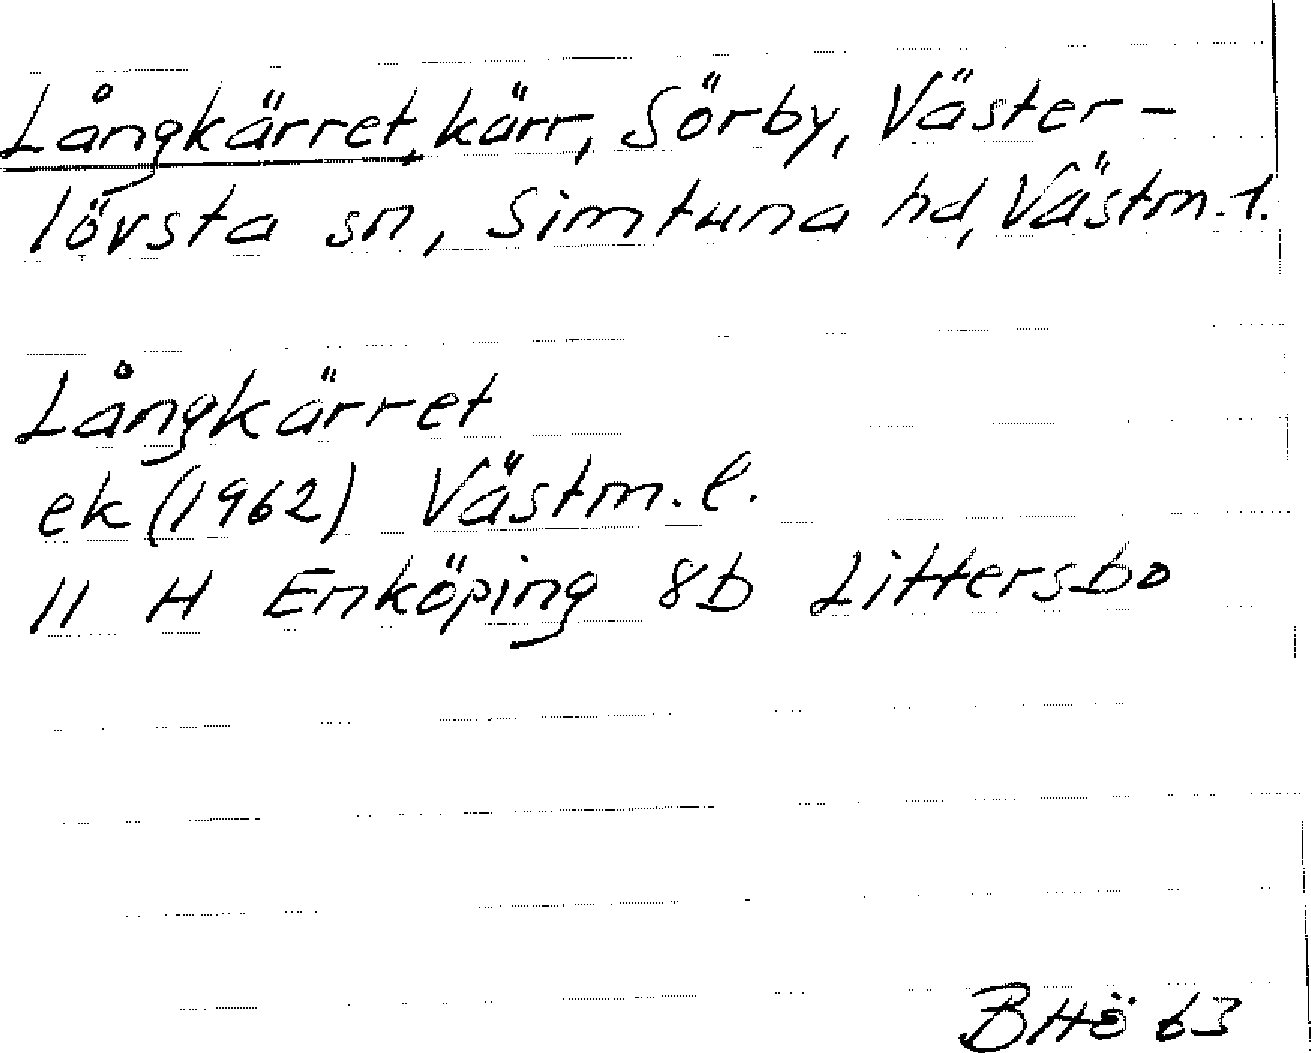 Långkärret, kärr, Sörby, Väster-
lövsta sn, Simtuna hd, Västm. l.
Långkärret
ek (1962) Västm. l.
11 H Enköping 8b Littersbo
BHö 63